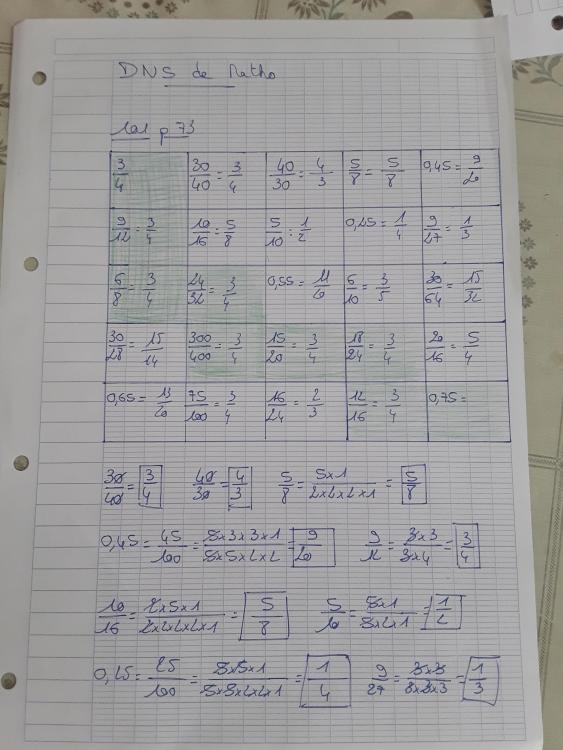 DNS de Maths
101 p 73
3/4 30/40 = 3/4 40/30 = 4/3 5/8 = 5/8 0,45 = 9/20
9/12 = 3/4 10/16 = 5/8 5/10 = 1/2 0,25 = 1/4 9/27 = 1/3
6/8 = 3/4 24/32 = 3/4 0,55 = 11/20 6/10 = 3/5 30/64 = 15/32
30/28 = 15/14 300/400 = 3/4 15/20 = 3/4 18/24 = 3/4 20/16 = 5/4
0,65 = 13/20 75/100 = 3/4 16/24 = 2/3 12/16 = 3/4 0,75 =
30/40 = 3/4 40/30 = 4/3 5/8 = 5x1/2x2x2x1 = 5/8
0,45 = 45/100 = 5x3x3x1/5x5x2x2 = 9/20 9/12 = 3x3/3x4 = 3/4
10/16 = 2x5x1/2x2x2x2x1 = 5/8 5/10 = 5x1/5x2x1 = 1/2
0,25 = 25/100 = 5x5x1/5x5x2x2x1 = 1/4 9/27 = 3x3/3x3x3 = 1/3